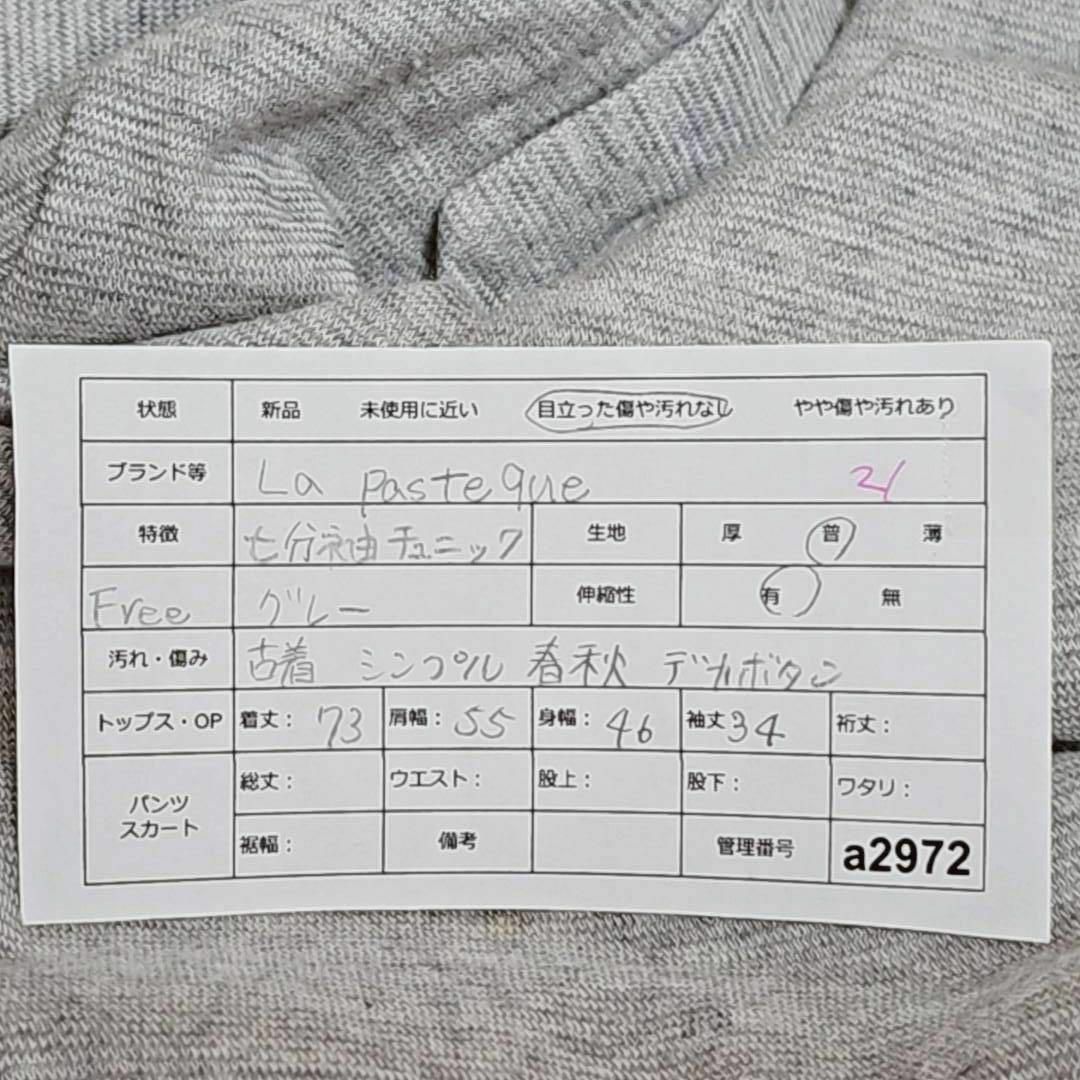 状態 新品 未使用に近い 目立った傷や汚れなし やや傷や汚れあり
ブランド等 La pasteque 21
特徴 七分袖チュニック 生地 厚 普 薄
Free グレー 伸縮性 有 無
汚れ・傷み 古着 シンプル 春秋 デカボタン
トップス・OP 着丈：73 肩幅：55 身幅：46 袖丈34 裄丈：
パンツ スカート 総丈： ウエスト： 股上： 股下： ワタリ：
裾幅： 備考 管理番号 a2972